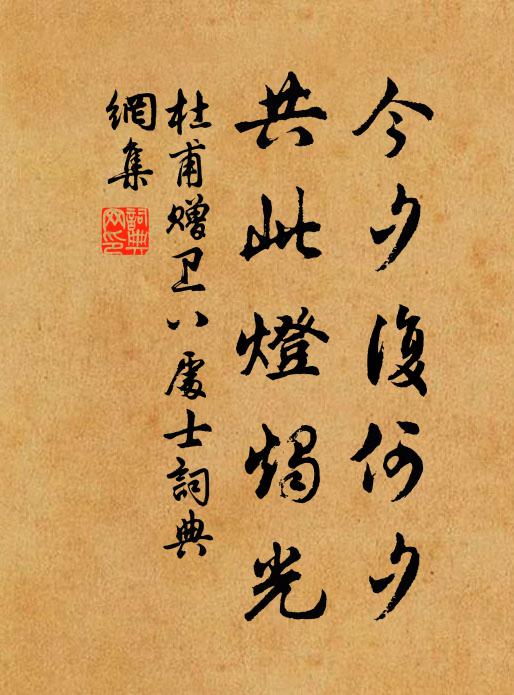 今夕復何夕
共此燈燭光
杜甫贈卫八處士詞典
網集
詞典
网印